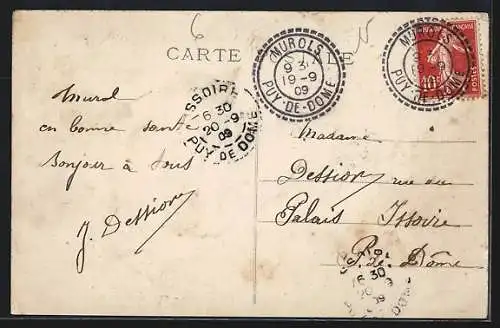 6
CARTE
MUROLS
9 30
19-9
09
PUY-DE-DOME
MUROLS
19-9
09
PUY-DE-DOME
10c
POSTES
ISSOIRE
6 30
20-9
09
PUY DE DOME
Murol
en bonne santé
Bonjour à tous
J. Dession
Madame
Dession rue du
Palais Issoire
P. de Dôme
6 30
20-9
09
DOME